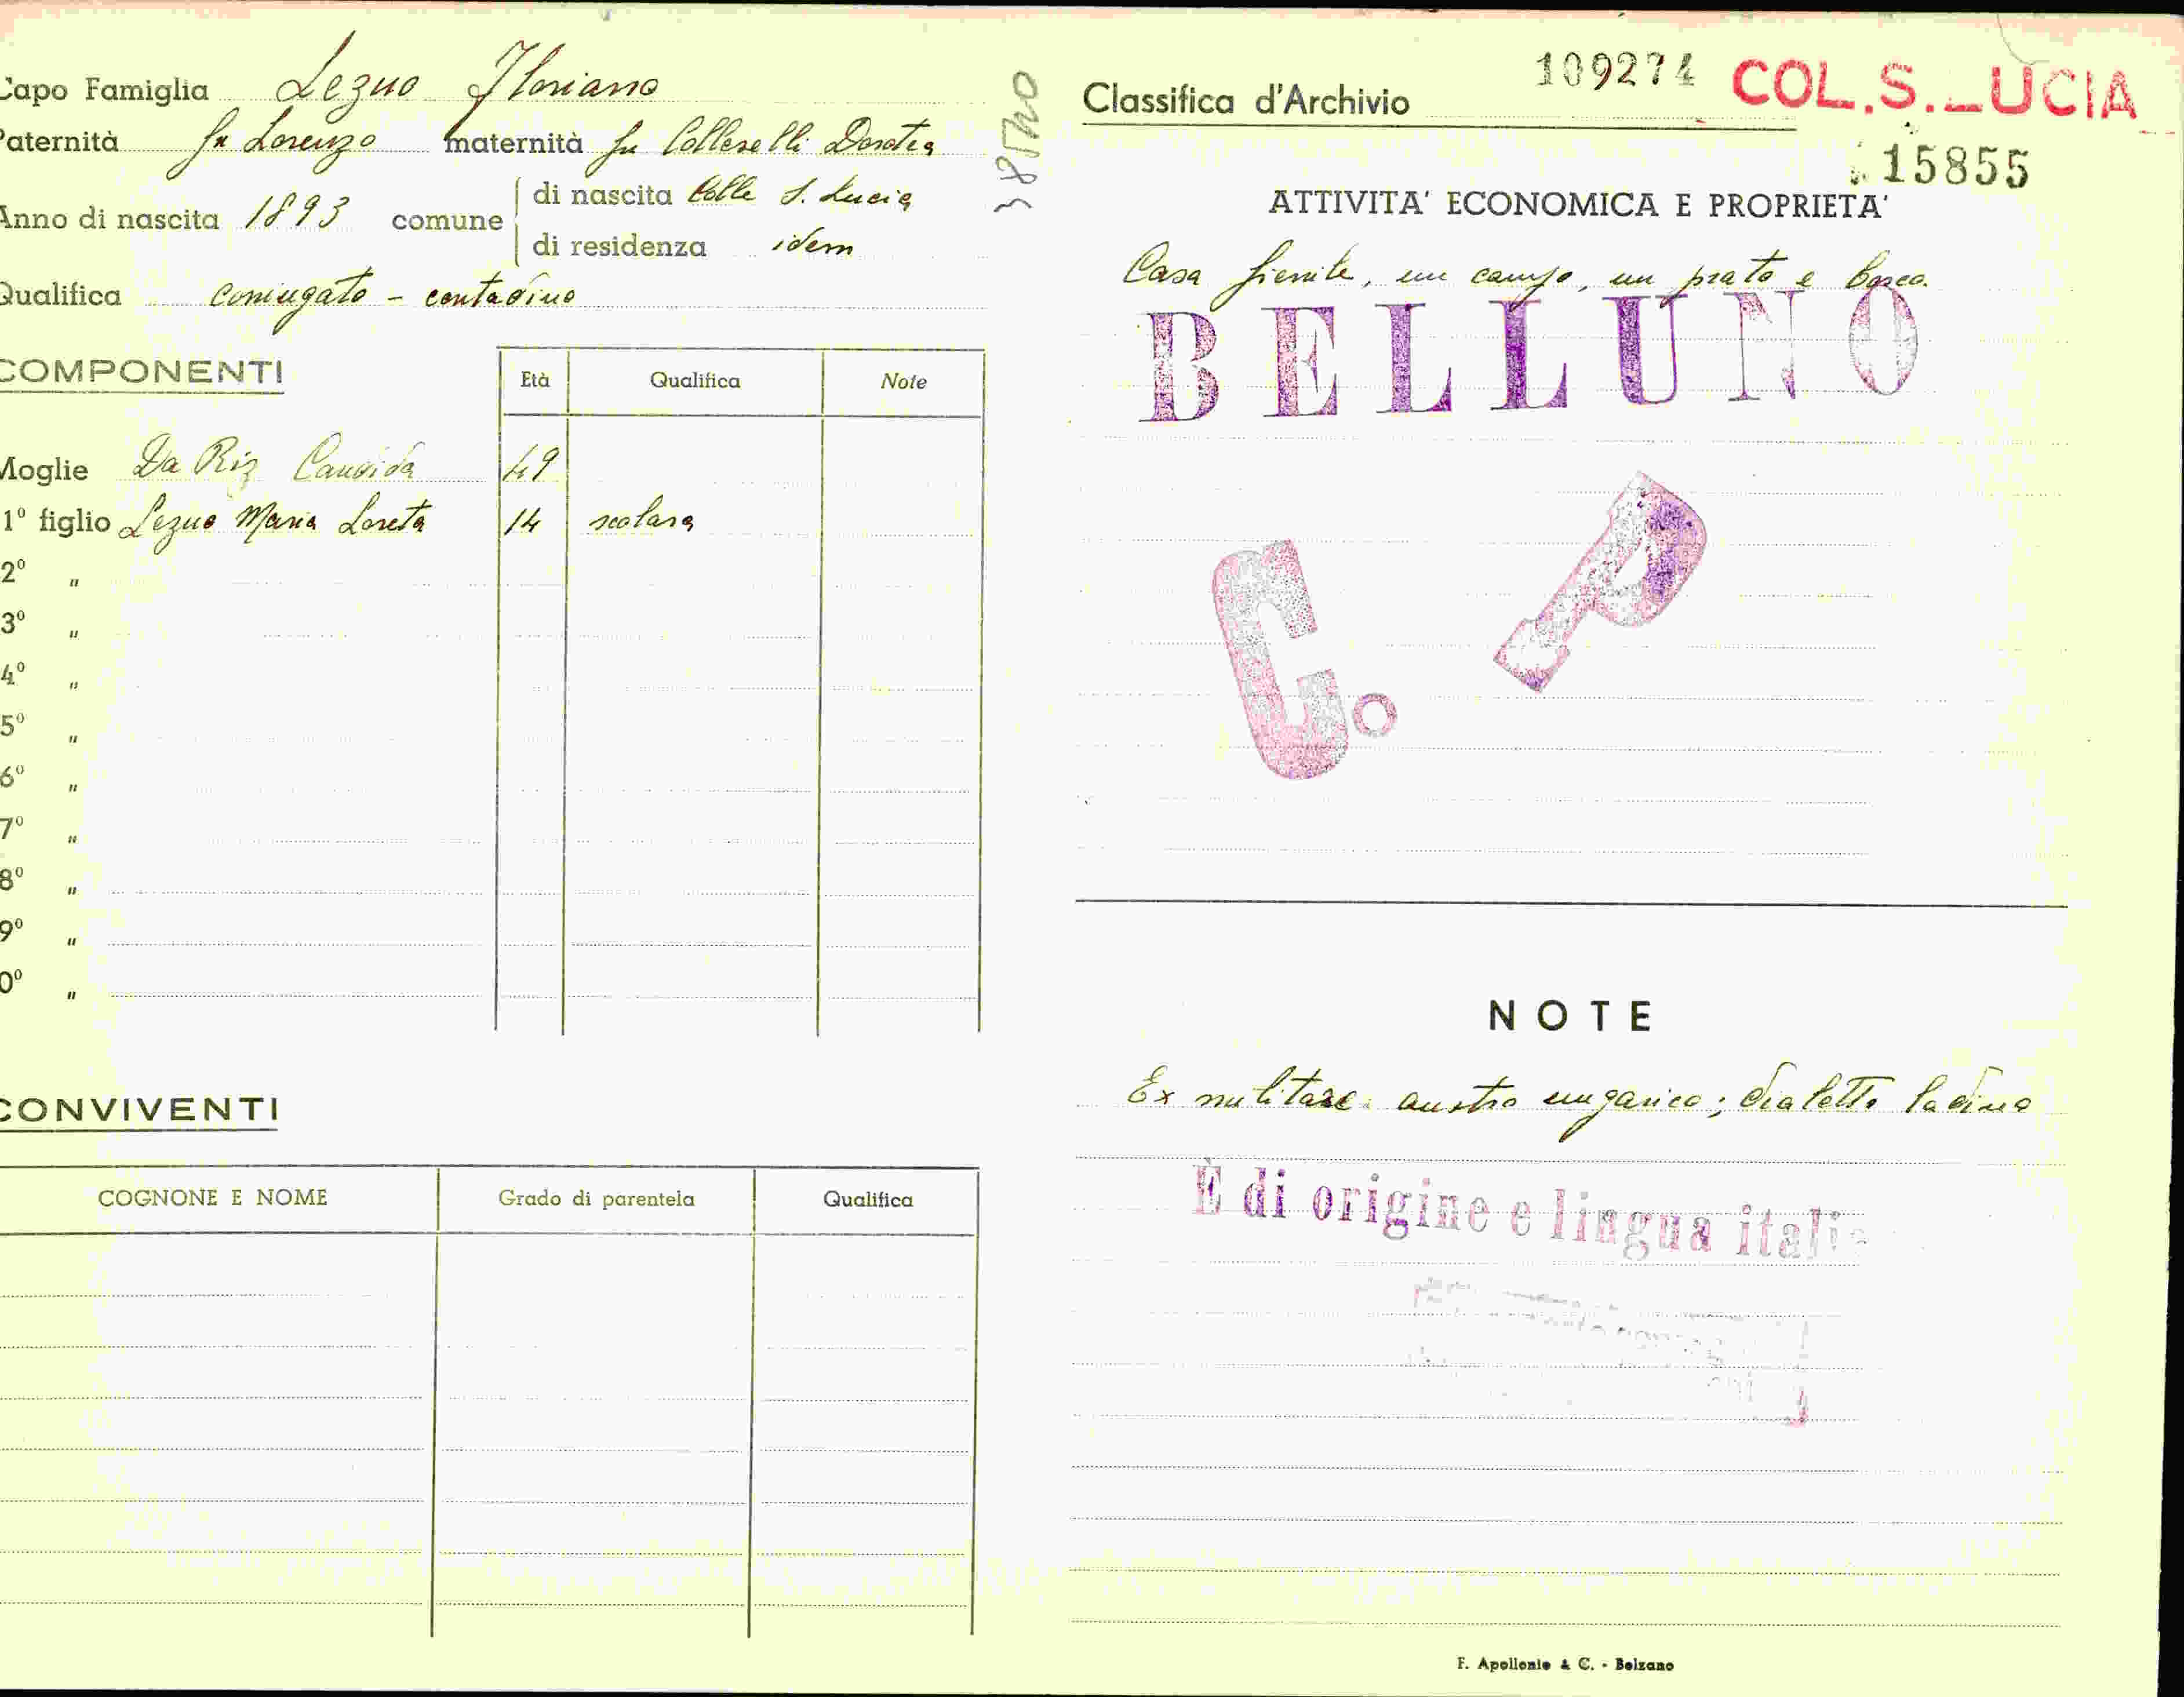 Capo Famiglia Lezuo Floriano
Paternità fu Lorenzo maternità fu Colleselli Dorotea
Anno di nascita 1893 comune di nascita Colle S. Lucia
di residenza idem
Qualifica coniugato - contadino
COMPONENTI
Età Qualifica Note
Moglie Da Riz Candida 49
1º figlio Lezuo Maria Loreta 14 scolara
2º "
3º "
4º "
5º "
6º "
7º "
8º "
9º "
0º "
CONVIVENTI
COGNONE E NOME Grado di parentela Qualifica
Classifica d'Archivio 109274 COL.S.LUCIA
15855
ATTIVITA' ECONOMICA E PROPRIETA'
Casa fienile, un campo, un prato e bosco.
BELLUNO
C. P
NOTE
Ex militare austro ungarico; dialetto ladino
È di origine e lingua itali
F. Apollonio & C. - Bolzano